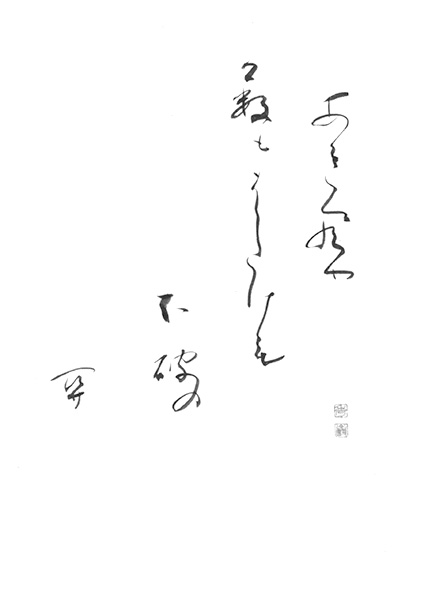 あきかぜや
藪もはたけも
不破の
関